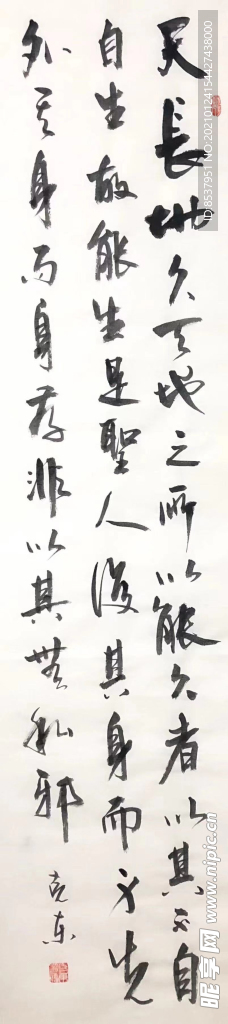 天長地久天地之所以能久者以其不自
自生故能生是聖人後其身而身先
外其身而身存非以其無私邪
克东
ID:8537951 NO:20210124154427438000
昵享网 www.nipic.cn